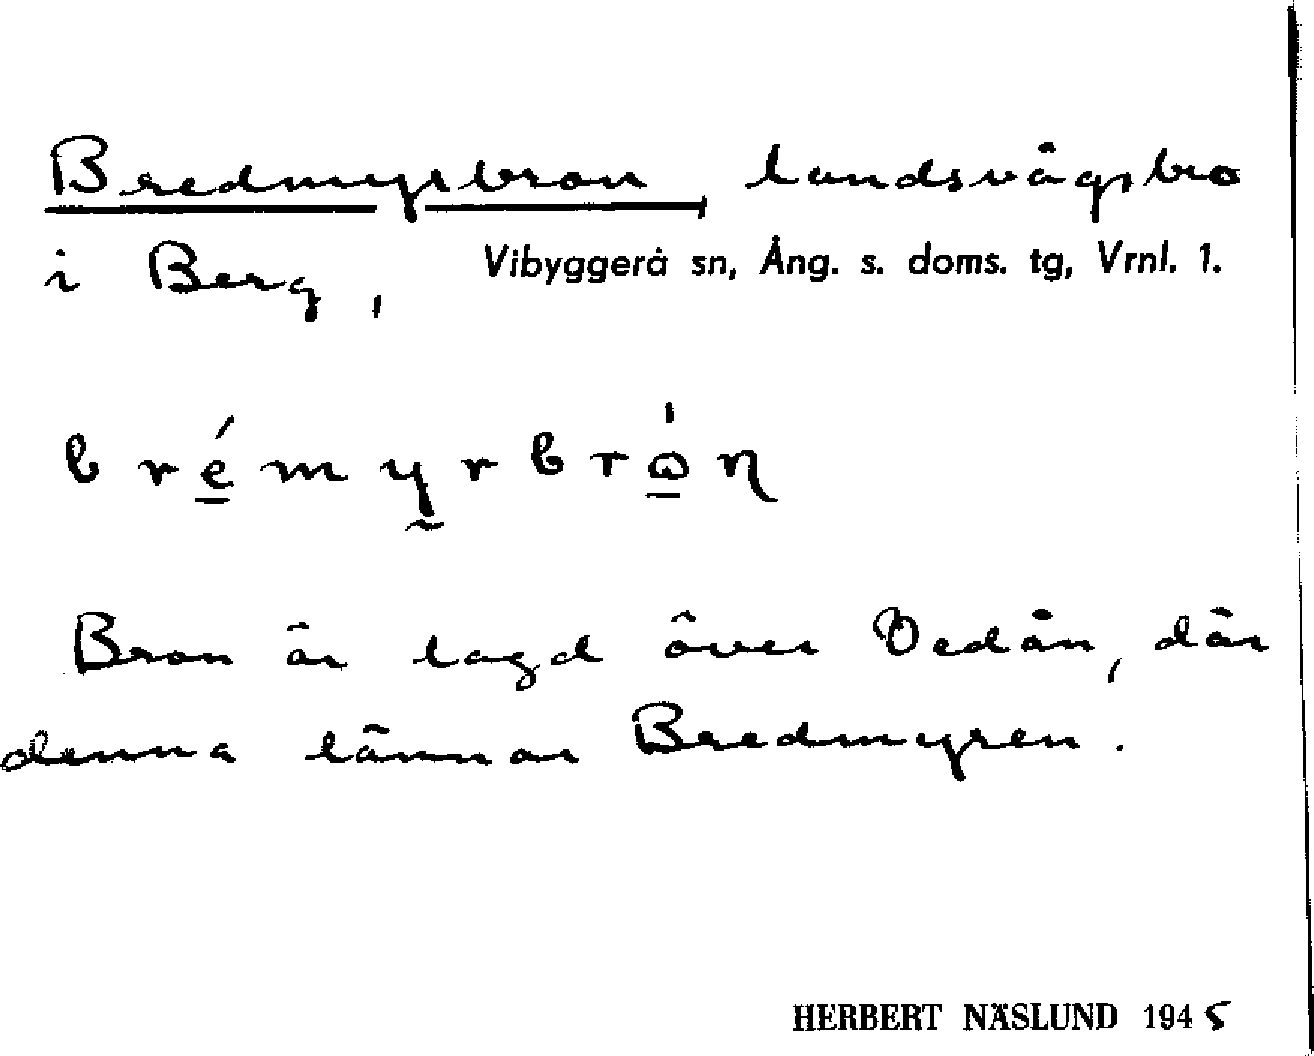 Bredmyrbron, landsvägsbro
i Berg, Vibyggerå sn, Ång. s. doms. tg, Vrnl. 1.
brémyrbrón
Bron är lagd över Vedån, där
denna lämnar Bredmyren.
HERBERT NÄSLUND 1945